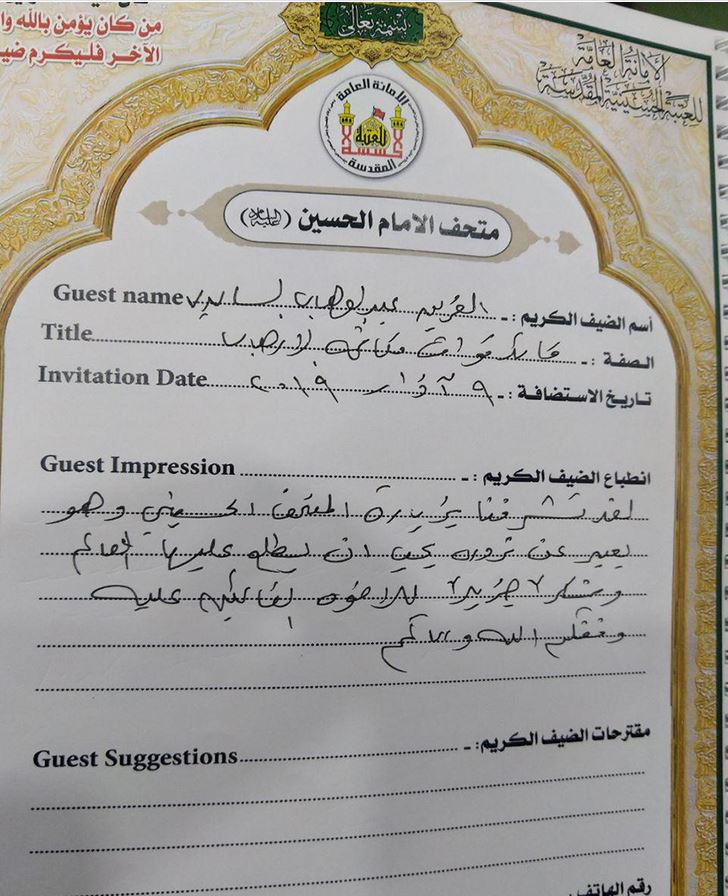 من كان يؤمن بالله وا
الآخر فليكرم ضي
بسمه تعالى
الأمانة العامة
للعتبة الحسينية المقدسة
الامانة العامة
للعتبة
الحسينية
المقدسة
متحف الامام الحسين (عليه السلام)
Guest name الفريق عبد الوهاب الساعدي أسم الضيف الكريم :ـ
Title قائد قوات مكافحة الارهاب الصفة :ـ
Invitation Date ٩ آذار ٢٠١٩ تاريخ الاستضافة :ـ
Guest Impression انطباع الضيف الكريم :ـ
لقد تشرفنا بزيارة المتحف الحسيني وهو
يعبر عن ثروة يجب ان يطلع عليها العالم
وشكرا جزيلا للاخوة القائمين عليه
وفقكم الله
مقترحات الضيف الكريم: ـ
Guest Suggestions
رقم الهاتف